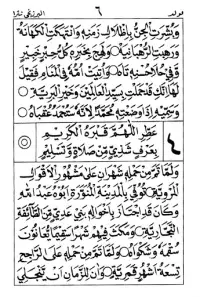 مولد ٦ البرزنجي نثر
وَبَشَّرَتِ الْجِنُّ بِإِظْلَالِ زَمَنِهِ وَانْتُهِكَتِ الْكَهَانَةُ
وَرَهِبَتِ الرَّهْبَانِيَّةُ ۞ وَلَهِجَ بِخَبَرِهِ كُلُّ حِبْرٍ خَبِيرٍ
وَفِي حُلَا حُسْنِهِ تَاهَ ۞ وَأُتِيَتْ أُمُّهُ فِي الْمَنَامِ فَقِيلَ
لَهَا إِنَّكِ قَدْ حَمَلْتِ بِسَيِّدِ الْعَالَمِينَ وَخَيْرِ الْبَرِيَّةِ ۞
وَسَمِّيهِ إِذَا وَضَعْتِهِ مُحَمَّدًا لِأَنَّهُ سَتُحْمَدُ عُقْبَاهُ ۞
عَطِّرِ اللّٰهُمَّ قَبْرَهُ الْكَرِيمَ
بِعَرْفٍ شَذِيٍّ مِنْ صَلَاةٍ وَتَسْلِيمٍ
٤
وَلَمَّا تَمَّ مِنْ حَمْلِهِ شَهْرَانِ عَلَى مَشْهُورِ الْأَقْوَالِ
الْمَرْوِيَّةِ ۞ تُوُفِّيَ بِالْمَدِينَةِ الْمُنَوَّرَةِ أَبُوهُ عَبْدُ اللّٰهِ
وَكَانَ قَدِ اجْتَازَ بِأَخْوَالِهِ بَنِي عَدِيٍّ مِنَ الطَّائِفَةِ
النَّجَّارِيَّةِ ۞ وَمَكَثَ فِيهِمْ شَهْرًا سَقِيمًا يُعَانُونَ
سُقْمَهُ وَشَكْوَاهُ ۞ وَلَمَّا تَمَّ مِنْ حَمْلِهِ عَلَى الرَّاجِحِ
تِسْعَةُ أَشْهُرٍ قَمَرِيَّةٍ ۞ وَآنَ لِلزَّمَانِ أَنْ يَنْجَلِيَ